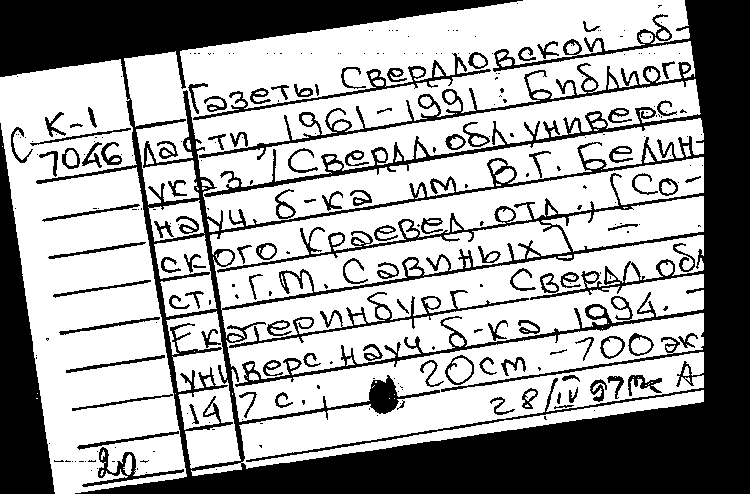 Газеты Свердловской об-
С К-1
7046
ласти, 1961-1991 : Библиогр
указ. / Свердл. обл. универс.
науч. б-ка им. В.Г. Белин-
ского. Краевед. отд.; [Со-
ст. : Г.М. Савиных]. —
Екатеринбург : Свердл. обл
универс. науч. б-ка, 1994. —
147 с. ; 20 см. - 700 эк
28/IV 97 А
20